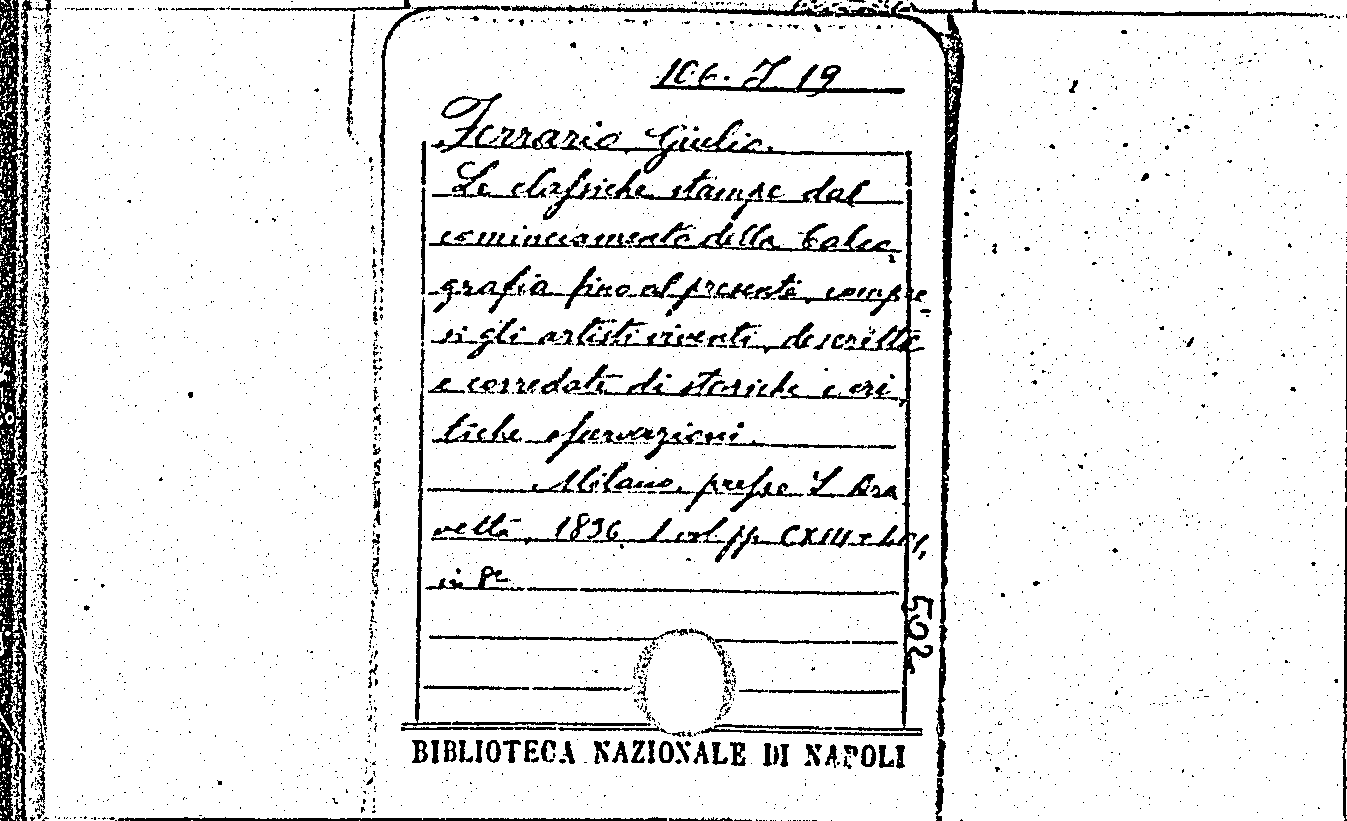 106. J 19
Ferrario Giulio.
Le classiche stampe dal
cominciamento della Calco,
grafia fino al presente, compre,
si gli artisti viventi, descritte
e corredate di storiche e cri,
tiche osservazioni.
Milano, presso S. Bra
vetta, 1836. 1 vol. pp. CXIII
in 8º
502
BIBLIOTECA NAZIONALE DI NAPOLI